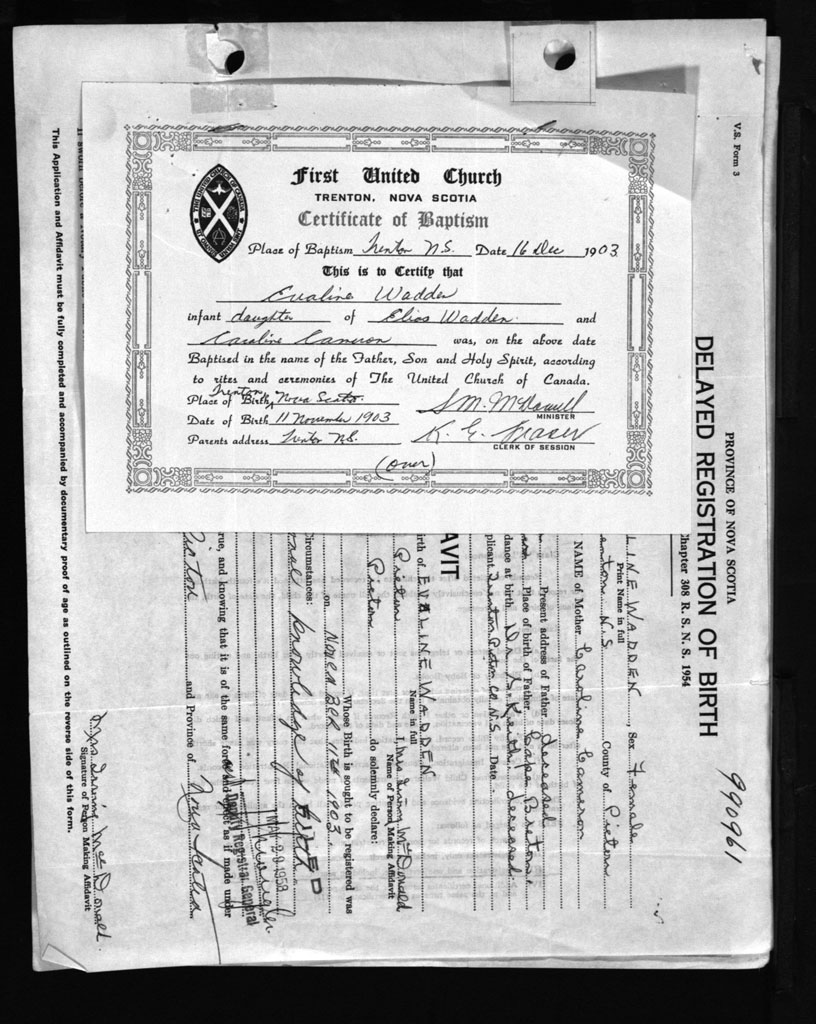 First United Church
TRENTON, NOVA SCOTIA
Certificate of Baptism
Place of Baptism Trenton N.S. Date 16 Dec 1903
This is to Certify that
Evaline Wadden
infant daughter of Elias Wadden and
Caroline Cameron was, on the above date
Baptised in the name of the Father, Son and Holy Spirit, according
to rites and ceremonies of The United Church of Canada.
Trenton
Place of Birth, Nova Scotia.
MINISTER
Date of Birth 11 November 1903
K. G. Fraser
Parents address Trenton N.S.
CLERK OF SESSION
(over)
V.S. Form 3
990961
PROVINCE OF NOVA SCOTIA
DELAYED REGISTRATION OF BIRTH
Chapter 308 R. S. N. S. 1954
LINE WADDEN, Sex Female
Print Name in full
enton N.S. County of Pictou
NAME of Mother Caroline Cameron
Present address of Father deceased
Place of birth of Father Cape Breton
dance at birth Dr. Keith, deceased
plicant Trenton Pictou Co N.S. Date
AVIT
rth of EVALINE WADDEN
Name in full
Pictou I, Mrs Irving McDonald
Name of Person Making Affidavit
Pictou do solemnly declare:
Whose Birth is sought to be registered was
on NOVEMBER 11th 1903.
ircumstances:
knowledge of birth
FILED
MAY 29 1958
Deputy Registrar General
rue, and knowing that it is of the same force and effect as if made under
Pictou and Province of Nova Scotia
Mrs Irving McDonald
Signature of Person Making Affidavit
This Application and Affidavit must be fully completed and accompanied by documentary proof of age as outlined on the reverse side of this form.